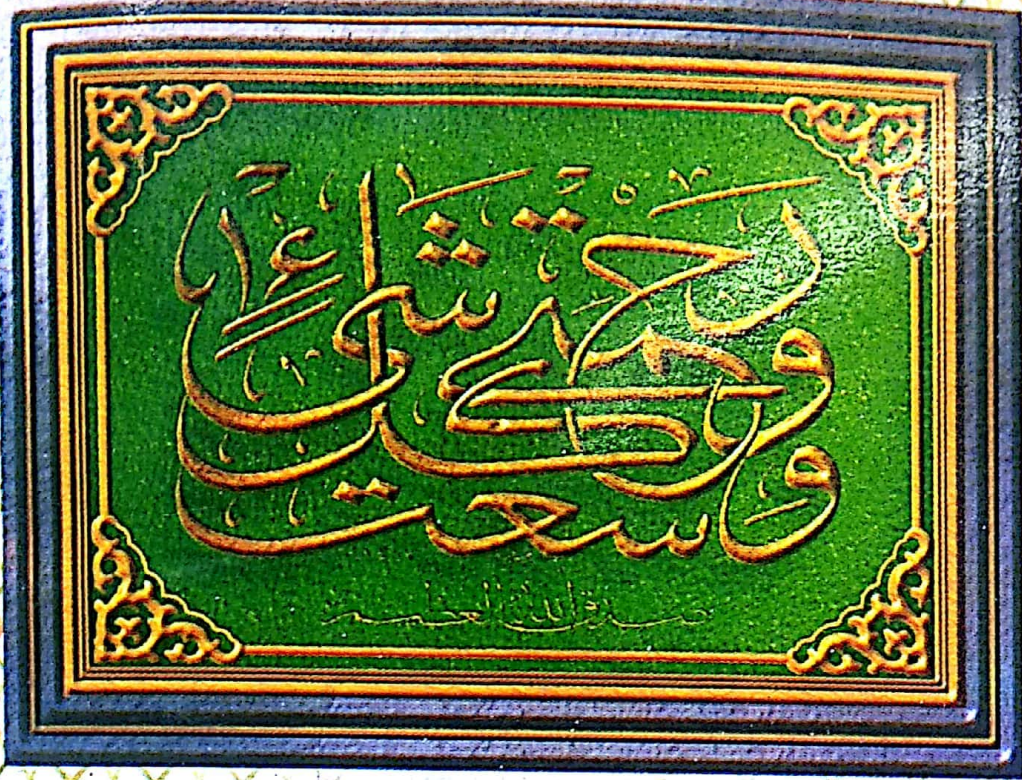 ورحمتي وسعت كل شيء
صدق الله العظيم